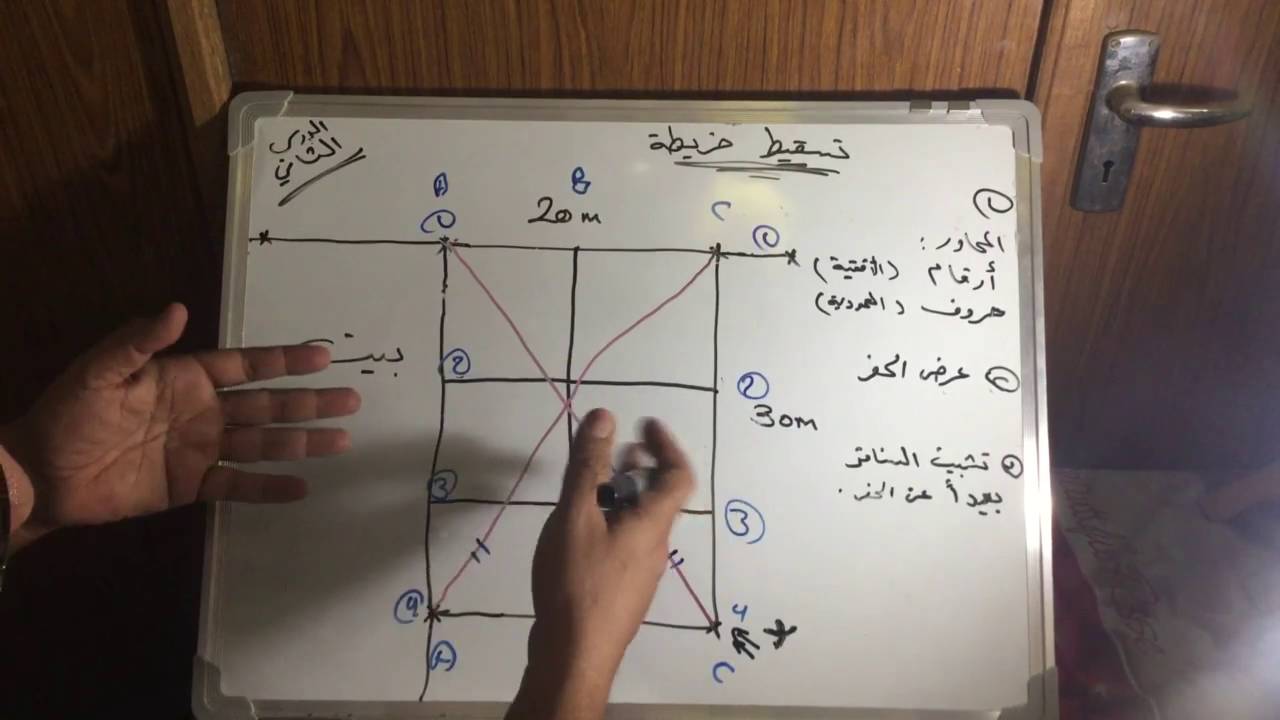 الدرس
الثاني
تسقيط خريطة
A
B
C
20m
①
①
①
المحاور :
أرقام (الأفقية)
حروف (العمودية)
بيت
②
②
30m
عرض الحفر
③
③
تثبيت السناتر
بعيداً عن الحفر .
④
4
C